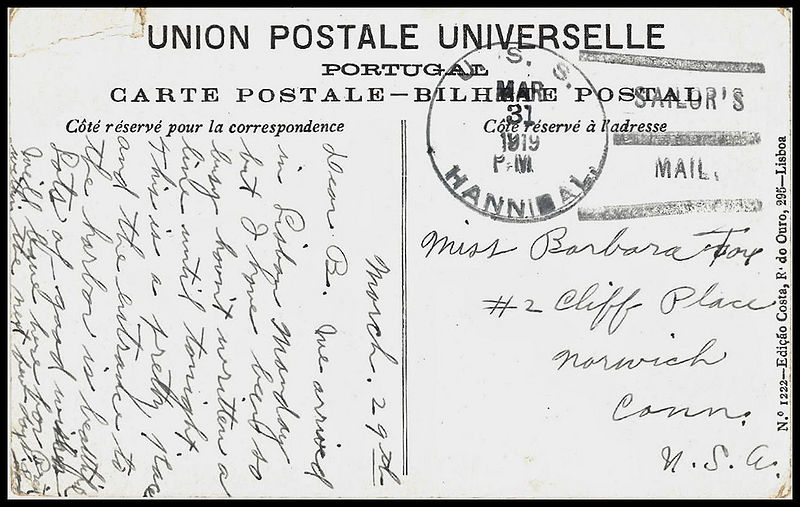 UNION POSTALE UNIVERSELLE
PORTUGAL
CARTE POSTALE—BILHETE POSTAL
Côté réservé pour la correspondence
Côté réservé à l'adresse
U. S. S.
MAR
31
1919
P·M.
HANNIBAL.
SAILOR'S
MAIL.
March. 29th
Dear B. We arrived
in Lisbon Monday
but I have been so
busy havn't written a
line until tonight
This is a pretty place
and the entrance to
the harbor is beautiful
Lots of good wishes
Will leave here for
within the next
Miss Barbara Fox
#2 Cliff Place
Norwich
Conn.
U.S.A.
N.º 1222—Edição Costa, R. do Ouro, 295—Lisboa